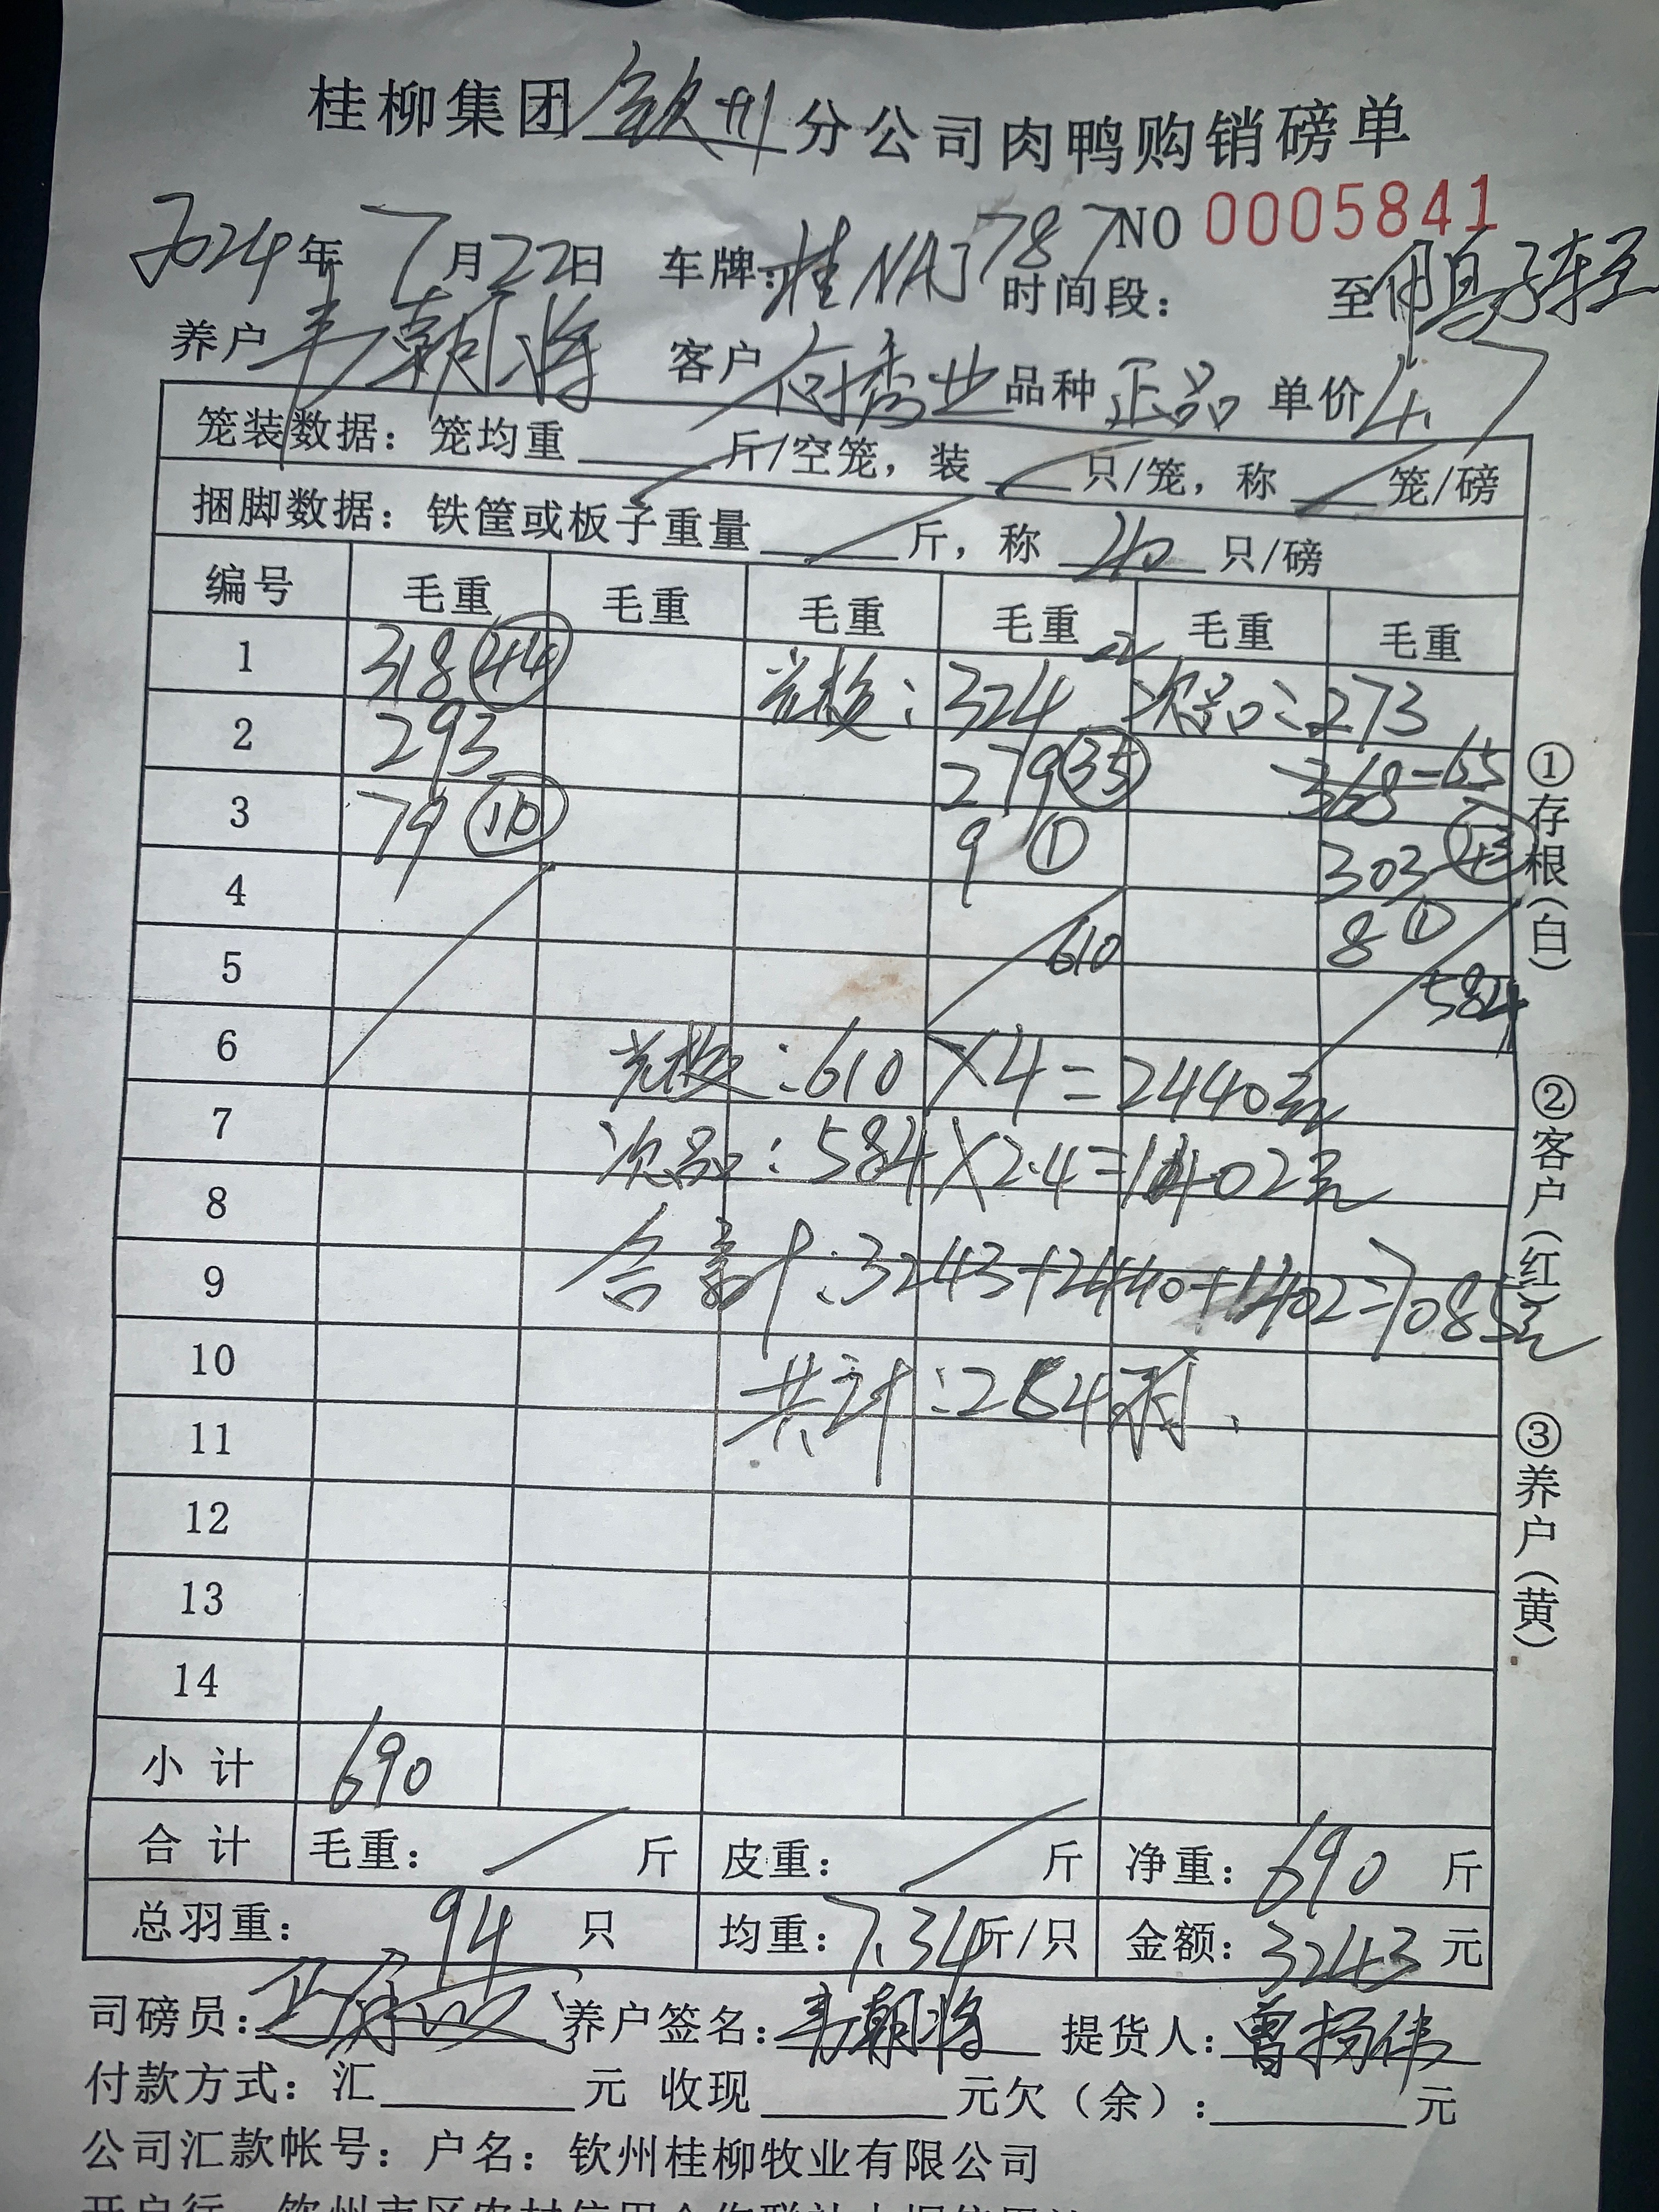 桂柳集团钦州分公司肉鸭购销磅单
NO 0005841
2024年7月22日 车牌:桂NAJ787 时间段: 至 鸭子轻
养户 韦朝将 客户 何秀业 品种 正品 单价 4.7
笼装数据: 笼均重 斤/空笼, 装 只/笼, 称 笼/磅
捆脚数据: 铁筐或板子重量 斤, 称 40 只/磅
编号 毛重 毛重 毛重 毛重 毛重 毛重
1 318 44 光板: 324 次品: 273
2 293 279 35 368=65
3 79 10 9 1 303 43
4 610 8 1
5 584
6 光板:610×4=2440元
7 次品:584×2.4=1402元
8
9 合计:3243+2440+1402=7085元
10 共计:284只
11
12
13
14
小计 690
合计 毛重: 斤 皮重: 斤 净重: 690 斤
总羽重: 94 只 均重: 7.34斤/只 金额: 3243 元
司磅员: 养户签名: 韦朝将 提货人: 曾杨伟
付款方式: 汇 元 收现 元欠(余): 元
公司汇款帐号: 户名: 钦州桂柳牧业有限公司
①存根(白) ②客户(红) ③养户(黄)